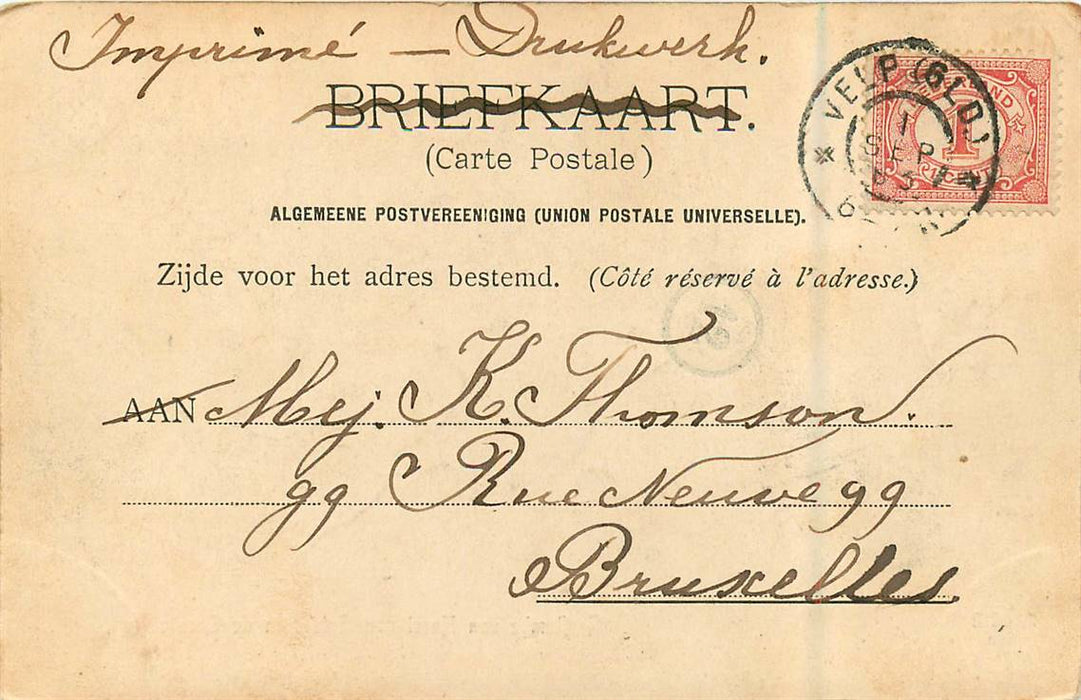 Imprimé — Drukwerk.
BRIEFKAART.
(Carte Postale)
ALGEMEENE POSTVEREENIGING (UNION POSTALE UNIVERSELLE).
Zijde voor het adres bestemd. (Côté réservé à l'adresse.)
AAN Mej. K. Thomson.
99 Rue Neuve 99
Bruxelles.
VELP (GLD)
1
SEP
1
CENT